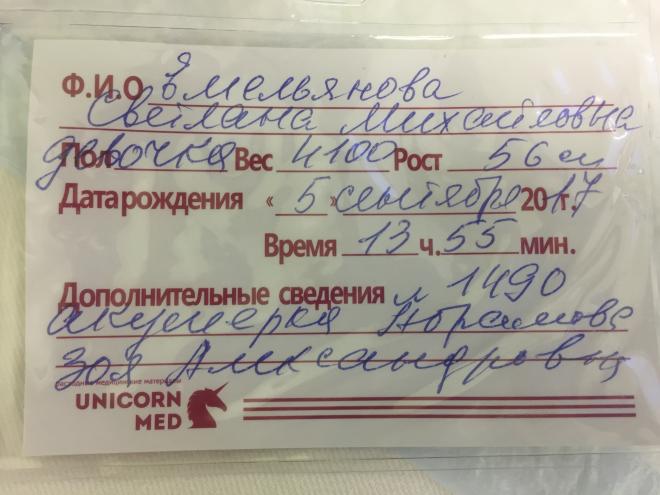 Ф.И.О Емельянова
Светлана Михайловна
Пол девочка Вес 4100 Рост 56 см
Дата рождения « 5 » сентября 2017 г.
Время 13 ч. 55 мин.
Дополнительные сведения 1490
акушерка Абрамова
Зоя Александровна
расходные медицинские материалы
UNICORN
MED